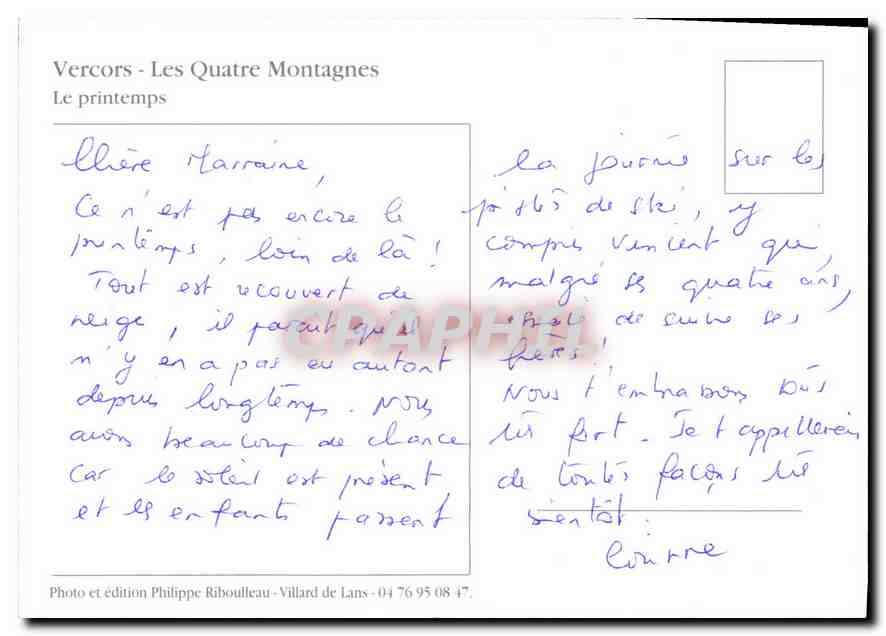 Vercors - Les Quatre Montagnes
Le printemps
Chère Marraine,
Ce n'est pas encore le
printemps, loin de là !
Tout est recouvert de
neige, il parait qu'il
n'y en a pas eu autant
depuis longtemps. Nous
avons beaucoup de chance
car le soleil est présent
et les enfants passent
la journée sur les
pistes de ski, y
compris Vincent qui,
malgré ses quatre ans,
essaie de suivre ses
frères !
Nous t'embrassons tous
très fort. Je t'appellerai
de toutes façons très
bientôt.
Corinne
CPAPHIL
Photo et édition Philippe Riboulleau - Villard de Lans - 04 76 95 08 47.